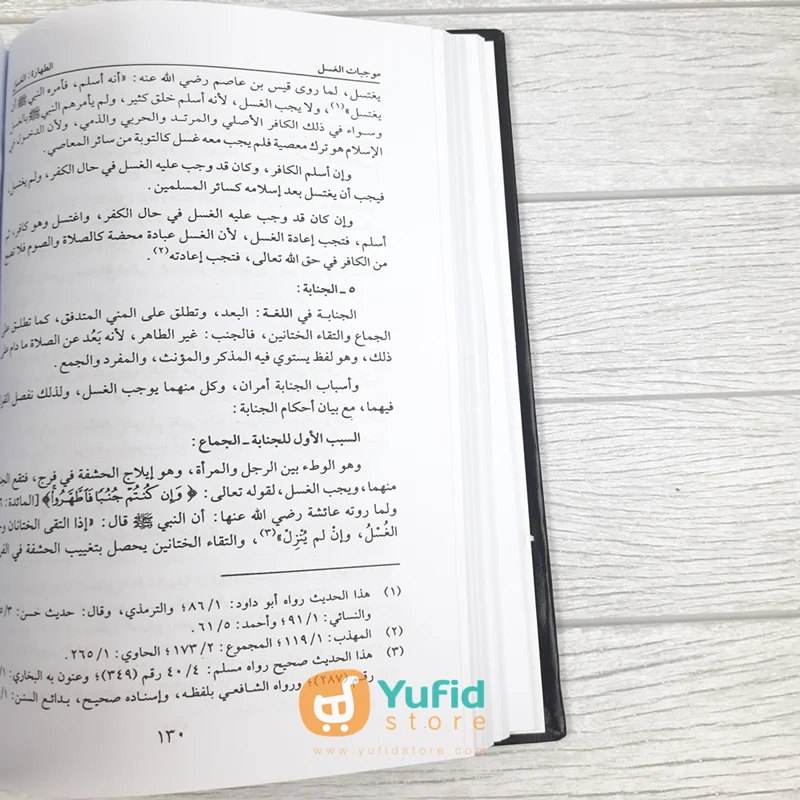 موجبات الغسل الطهارة: الغسل
يغتسل، لما روى قيس بن عاصم رضي الله عنه: «أنه أسلم، فأمره النبي ﷺ أن
يغتسل»(١)، ولا يجب الغسل، لأنه أسلم خلق كثير، ولم يأمرهم النبي ﷺ بالغسل
وسواء في ذلك الكافر الأصلي والمرتد والحربي والذمي، ولأن الدخول في
الإسلام هو ترك معصية فلم يجب معه غسل كالتوبة من سائر المعاصي.
وإن أسلم الكافر، وكان قد وجب عليه الغسل في حال الكفر، ولم يغتسل
فيجب أن يغتسل بعد إسلامه كسائر المسلمين.
وإن كان قد وجب عليه الغسل في حال الكفر، واغتسل وهو كافر، ثم
أسلم، فتجب إعادة الغسل، لأن الغسل عبادة محضة كالصلاة والصوم فلا تصح
من الكافر في حق الله تعالى، فتجب إعادته(٢).
٥ - الجنابة:
الجنابة في اللغة: البعد، وتطلق على المني المتدفق، كما تطلق على
الجماع والتقاء الختانين، فالجنب: غير الطاهر، لأنه بَعُد عن الصلاة ما دام على
ذلك، وهو لفظ يستوي فيه المذكر والمؤنث، والمفرد والجمع.
وأسباب الجنابة أمران، وكل منهما يوجب الغسل، ولذلك نفصل
فيهما، مع بيان أحكام الجنابة:
السبب الأول للجنابة - الجماع:
وهو الوطء بين الرجل والمرأة، وهو إيلاج الحشفة في فرج، فتقع
منهما، ويجب الغسل، لقوله تعالى: ﴿وَإِن كُنتُمْ جُنُبًا فَاطَّهَّرُوا﴾ [المائدة:
ولما روته عائشة رضي الله عنها: أن النبي ﷺ قال: «إذا التقى الختانان
الغُسْلُ، وإنْ لم يُنْزِلْ»(٣)، والتقاء الختانين يحصل بتغييب الحشفة في
(١) هذا الحديث رواه أبو داود: ٨٦/١؛ والترمذي، وقال: حديث حسن: ٣/
والنسائي: ٩١/١؛ وأحمد: ٦١/٥.
(٢) المهذب: ١١٩/١؛ المجموع: ١٧٣/٢؛ الحاوي: ٢٦٥/١.
(٣) هذا الحديث صحيح رواه مسلم: ٤٠/٤ رقم (٣٤٩)؛ وعنون به البخاري:
رقم (٢٨٧)؛ ورواه الشافعي بلفظه، وإسناده صحيح، بدائع السنن:
١٣٠
Yufid
store
www.yufidstore.com